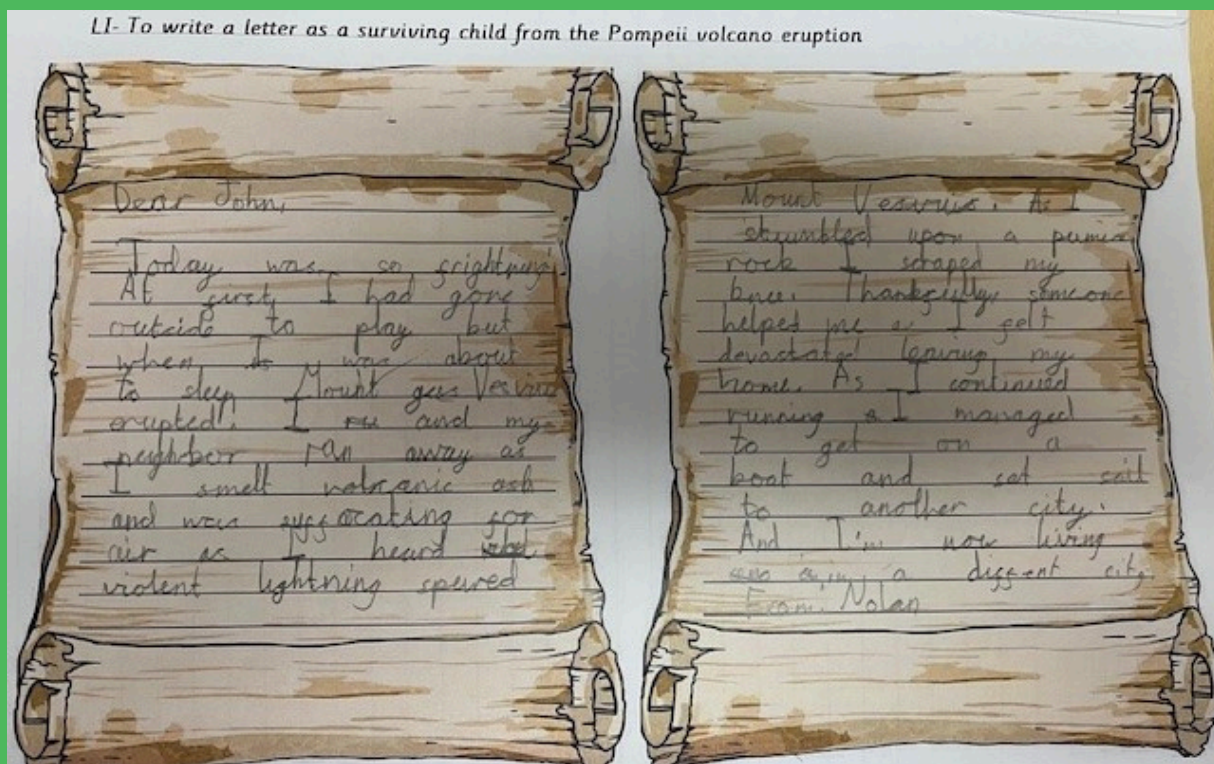 LI- To write a letter as a surviving child from the Pompeii volcano eruption
Dear John,
Today was so
At first, I had gone
outside to play but
when I was about
to sleep Mount
erupted! I and my
neighbor ran away as
I smelt volcanic ash
and was suffocating for
air as I heard
violent lightning
Mount Vesuvius. As I
upon a
rock I scraped my
knee. Thankfully someone
helped me I felt
devastated leaving my
home. As I continued
running I managed
to get on a
boat and set sail
to another city.
And I'm now living
in a city
From: Nolan